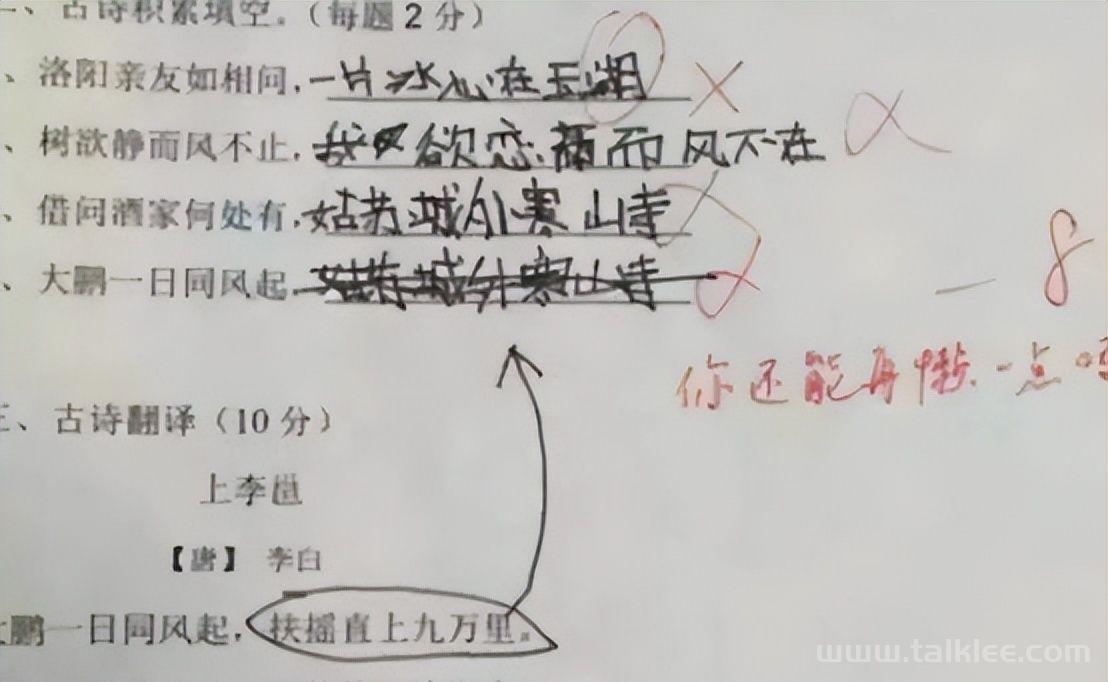 一、古诗积累填空。(每题 2 分)
、洛阳亲友如相问,一片冰心在玉湖
、树欲静而风不止,欲恋而风不在
、借问酒家何处有,姑苏城外寒山寺
、大鹏一日同风起,姑苏城外寒山寺
-8
你还能再懒一点吗
三、古诗翻译(10 分)
上李邕
【唐】 李白
大鹏一日同风起,扶摇直上九万里。
www.talklee.com